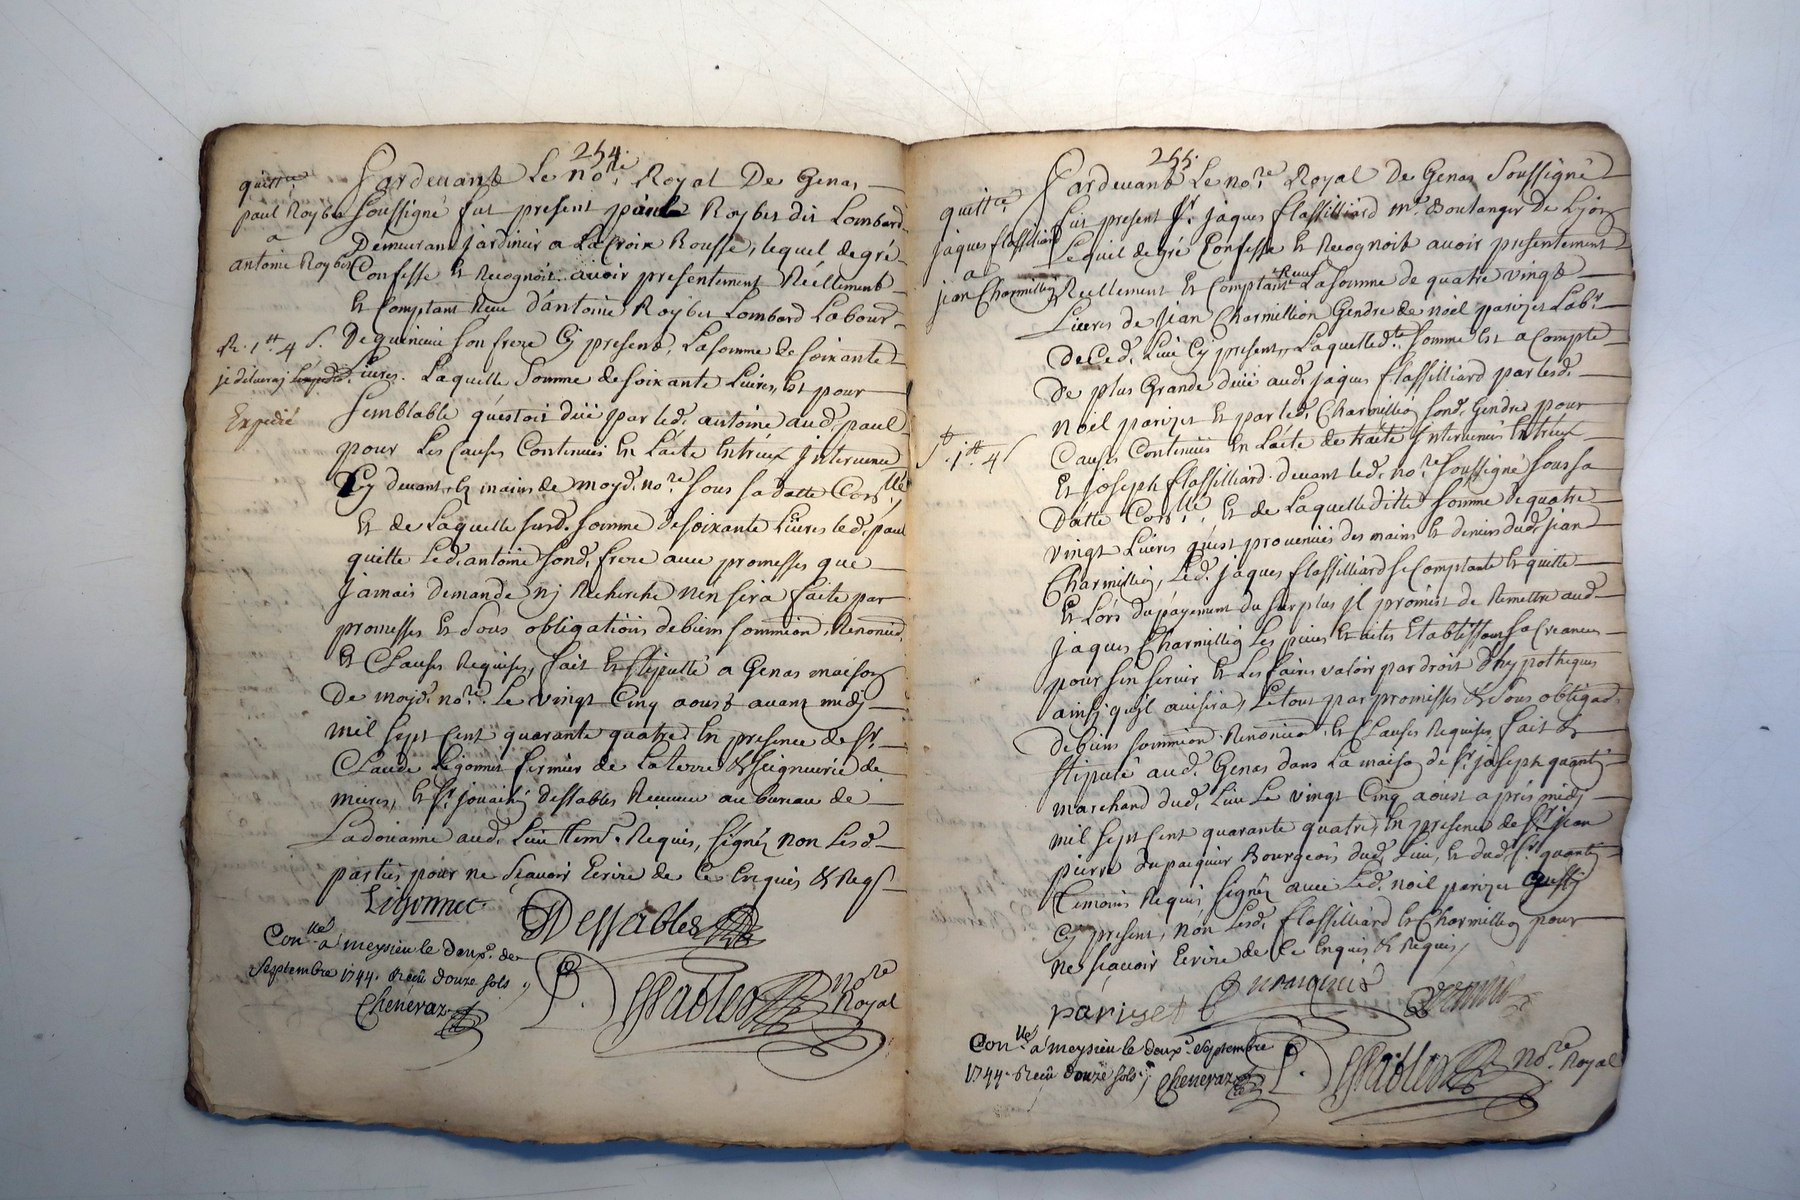 254.
quittce
paul Roybet
a
antoine Roybet
R. 1tt 4 s.
je delivray
Expedié
Pardevant Le nore. Royal De Genas
soussigné fut present paul Roybet dit Lombard
Demeurant jardinier a La Croix Rousse, lequel de gré
Confesse Et Recognoit avoir presentement Réellement
Et Comptant Reçu d'antoine Roybet Lombard Labour.
De quincieu son frere Cy present, La somme de soixante
Livres. Laquelle somme de soixante Livres, Est pour
semblable qu'estoit düe par led. antoine aud. paul
pour Les Causes Contenues En L'acte Entreux jntervenu
Cy devant Es mains de moyd. nore sous sa datte Conllé
Et de Laquelle surd. somme de soixante Livres led. paul
quitte Led. antoine sond. frere avec promesses que
jamais demande nj Recherche n'en sera faite par
promesses Et sous obligations de biens soummion. Renonied.
Et Clauses Requises, fait Et stipullé a Genas maison
De moyd. nore. Le vingt Cinq aoust avant midj
mil sept Cent quarante quatre En presence de sr.
Claude Ligonnet fermier de La terre & seigneurie de
mires, Et sr. jouachin Dessables Receveur au bureau de
La doüanne aud. Lieu tem. Requis, signés non Lesd.
parties pour ne sçavoir Ecrire de Ce Enquis & Reqs
Ligonnet Dessables
Conllé a meysieu le deux. de
Septembre 1744. Reçû douze sols
Cheneraz
P. Dessables nore Royal
255.
quittce
jaques flassilliard
a
jean Charmillion
1tt. 4 s
Pardevant Le nore. Royal De Genas soussigné
fut present sr. jaques flassilliard me. Boulanger De Lyon
Lequel de gré Confesse Et Recognoit avoir presentement
Reellement Et Comptant Reçu La somme de quatre vingt
Livres de jean Charmillion Gendre de noel parizet Labr.
de Ced. Lieu Cy present, Laquelled.te somme Est a Compte
De plus Grande düe aud. jaques flassilliard par lesd.
noel parizet Et par led. Charmillion sond. Gendre pour
Causes Contenües En L'acte de traité jntervenu Entreux
Et joseph flassilliard. devant led. nore soussigné sous sa
datte Conllé, Et de Laquelleditte somme de quatre
vingt Livres qu'est provenües des mains Et deniers dud. jean
Charmillion, Led. jaques flassilliard se Comptante Et quitte
Et Lors du payement du surplus jl promest de Remettre aud.
jaques Charmillion Les pieces Et actes Etablissant sa Creance
pour s'en servir Et Les faires valoir par droit d'hypotheques
ainsj qu'jl avisera, Le tout par promesses & sous obligaõ.
de biens soummion. Renonion. Et Clauses Requises, fait &
stipulé aud. Genas dans La maison de sr. joseph quantin
marchand dud. Lieu Le vingt Cinq aoust aprés midj
mil sept Cent quarante quatre En presence de sr. jean
pierre dupaquier Bourgeois dud. Lieu, Et dud. sr. quantin
temoins Requis signés avec Led. noel parizet
Cy present, non Lesd. flassilliard Et Charmillion pour
ne sçavoir Ecrire de Ce Enquis & Requis,
pariset
Conllé a meysieu le deux. Septembre
1744. Reçû douze sols. Cheneraz
P. Dessables nore. Royal